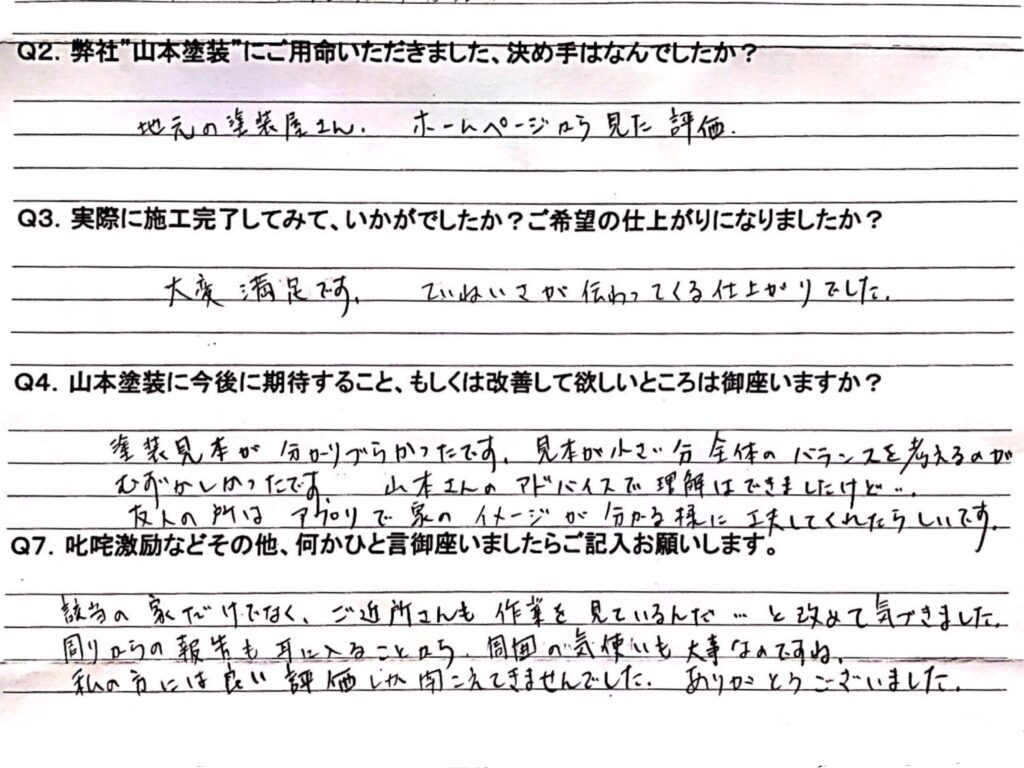 Q2. 弊社"山本塗装"にご用命いただきました、決め手はなんでしたか？
地元の塗装屋さん. ホームページから見た評価.
Q3. 実際に施工完了してみて、いかがでしたか？ご希望の仕上がりになりましたか？
大変満足です. ていねいさが伝わってくる仕上がりでした.
Q4. 山本塗装に今後に期待すること、もしくは改善して欲しいところは御座いますか？
塗装見本が分かりづらかったです. 見本が小さい分全体のバランスを考えるのが
むずかしかったです. 山本さんのアドバイスで理解はできましたけど….
友人の所はアプリで家のイメージが分かる様に工夫してくれたらしいです.
Q7. 叱咤激励などその他、何かひと言御座いましたらご記入お願いします。
該当の家だけでなく、ご近所さんも作業を見ているんだ…と改めて気づきました.
周りからの報告も耳に入ることから、周囲の気使いも大事なのですね.
私の方には良い評価しか聞こえてきませんでした. ありがとうございました.